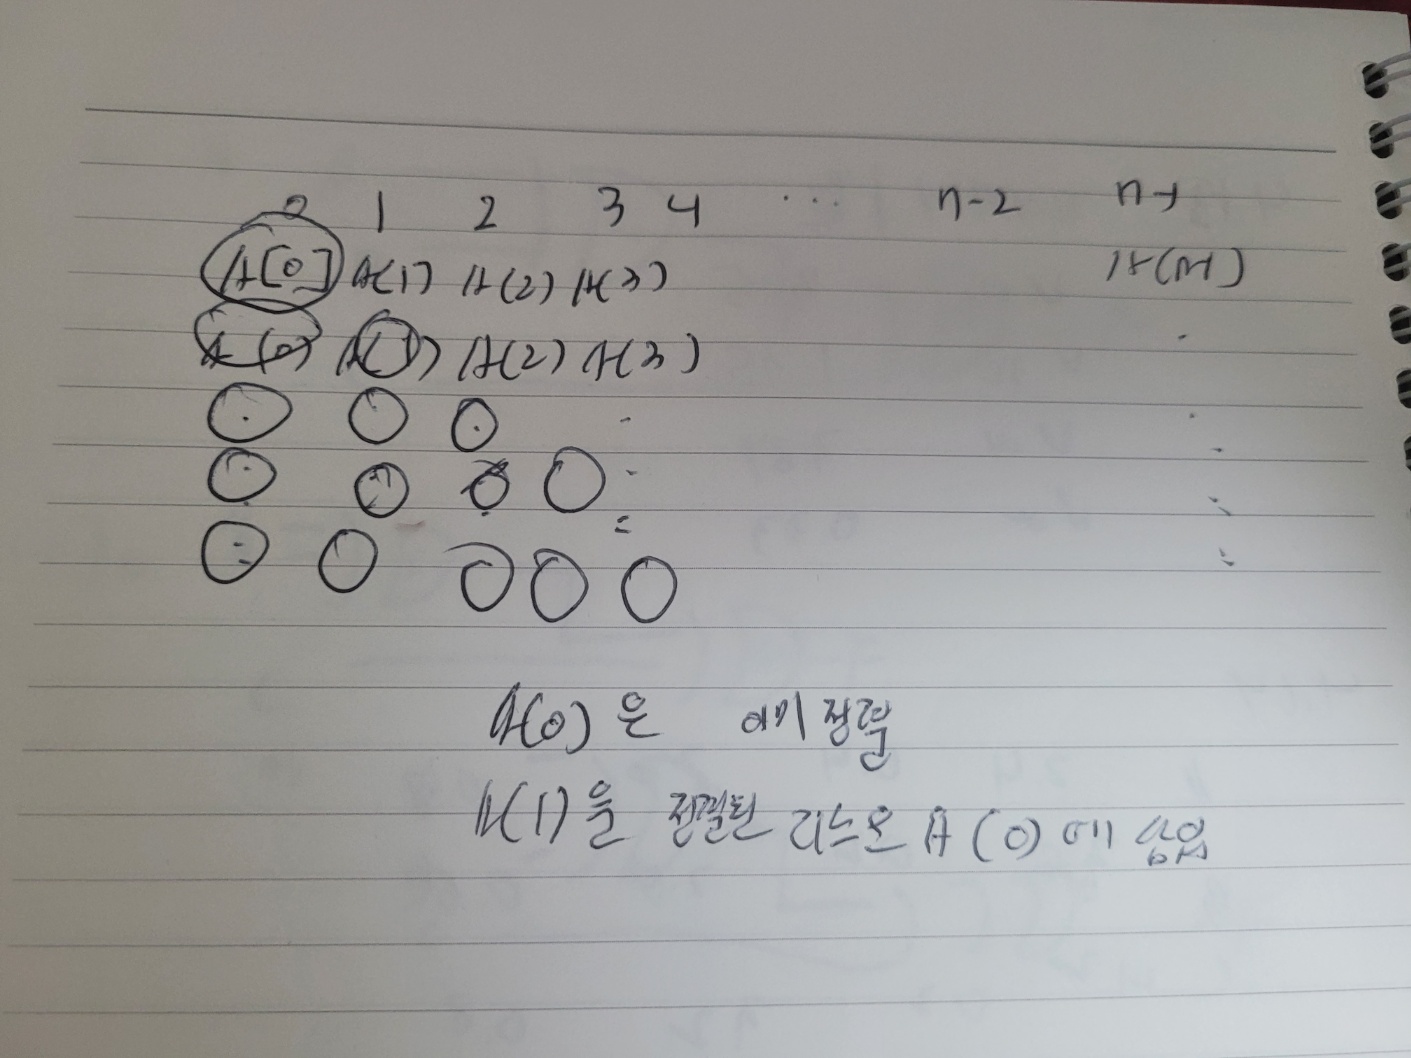 0 1 2 3 4 ... n-2 n-1
A[0] A(1) A(2) A(3) A(n-1)
A(0) A(1) A(2) A(3)
A(0) 은 이미 정렬
A(1)을 정렬된 리스트 A(0)에 삽입